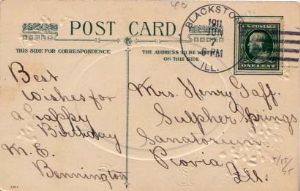 POST CARD
THIS SIDE FOR CORRESPONDENCE
THE ADDRESS TO BE WRITTEN ON THIS SIDE
BLACKSTO
1911
ILL.
Best
Wishes for
a Happy
Birthday
M. E.
Bennington
Mrs. Henry Gaff
Sulpher Springs
Sanatorium
Peoria
Ill.